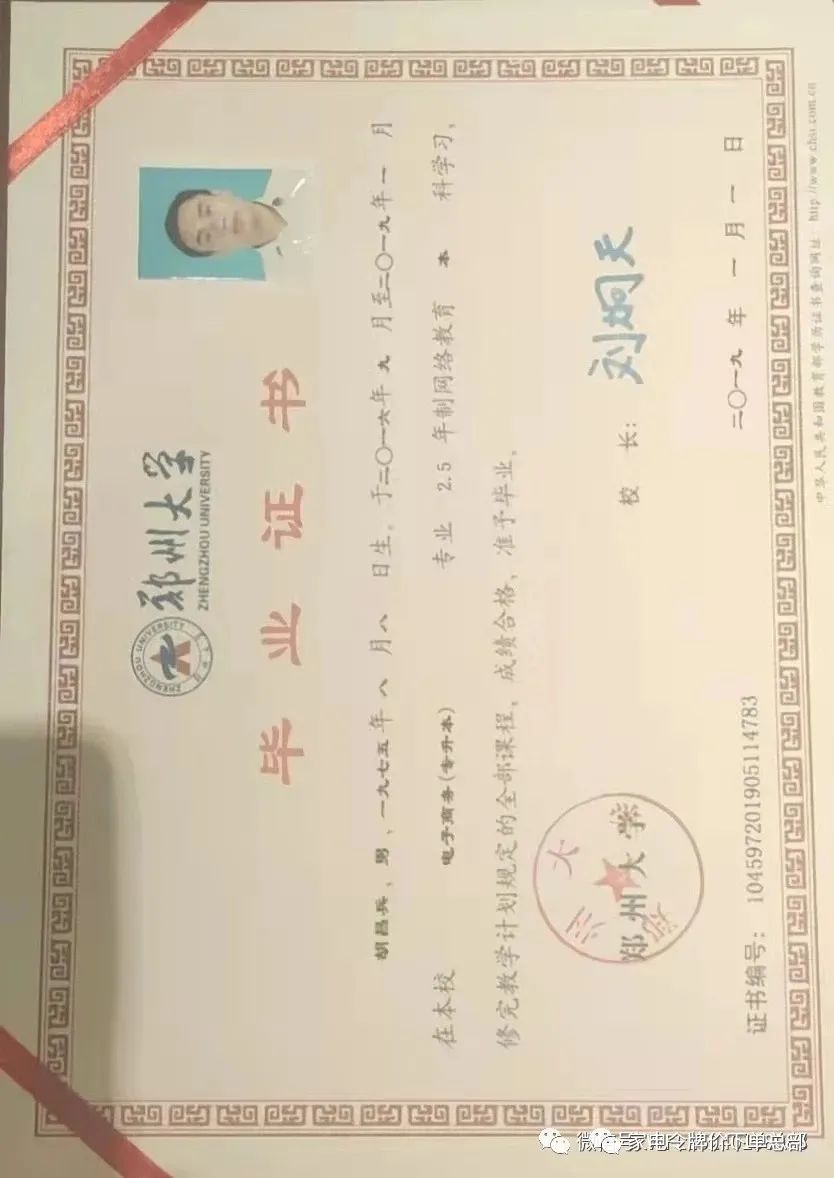 郑州大学
ZHENGZHOU UNIVERSITY
ZHENGZHOU UNIVERSITY
毕业证书
胡昌兵，男，一九七五年八月八日生。于二〇一六年九月至二〇一九年一月
在本校 电子商务(专升本) 专业 2.5 年制网络教育 本 科学习，
修完教学计划规定的全部课程，成绩合格，准予毕业。
郑州大学
校 长：刘炯天
二〇一九年一月一日
证书编号：104597201905114783
中华人民共和国教育部学历证书查询网址：http://www.chsi.com.cn